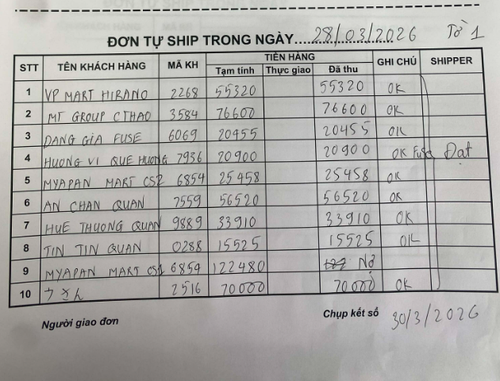 ĐƠN TỰ SHIP TRONG NGÀY 28/03/2026 Tờ 1
STT TÊN KHÁCH HÀNG MÃ KH TIỀN HÀNG GHI CHÚ SHIPPER
Tạm tính Thực giao Đã thu
1 VP MART HIRANO 2268 55320 55320 OK
2 MT GROUP CTHAO 3584 76600 76600 OK
3 DANG GIA FUSE 6069 20455 20455 OK
4 HUONG VI QUE HUONG 7936 20900 20900 OK Đạt
5 MYAPAN MART CS2 6854 25458 25458 OK
6 AN CHAN QUAN 7559 56520 56520 OK
7 HUE THUONG QUAN 9889 33910 33910 OK
8 TIN TIN QUAN 0288 15525 15525 OK
9 MYAPAN MART CS1 6854 122480 Nợ
10 うさん 2516 70000 70000 OK
Người giao đơn Chụp kết số 30/3/2026